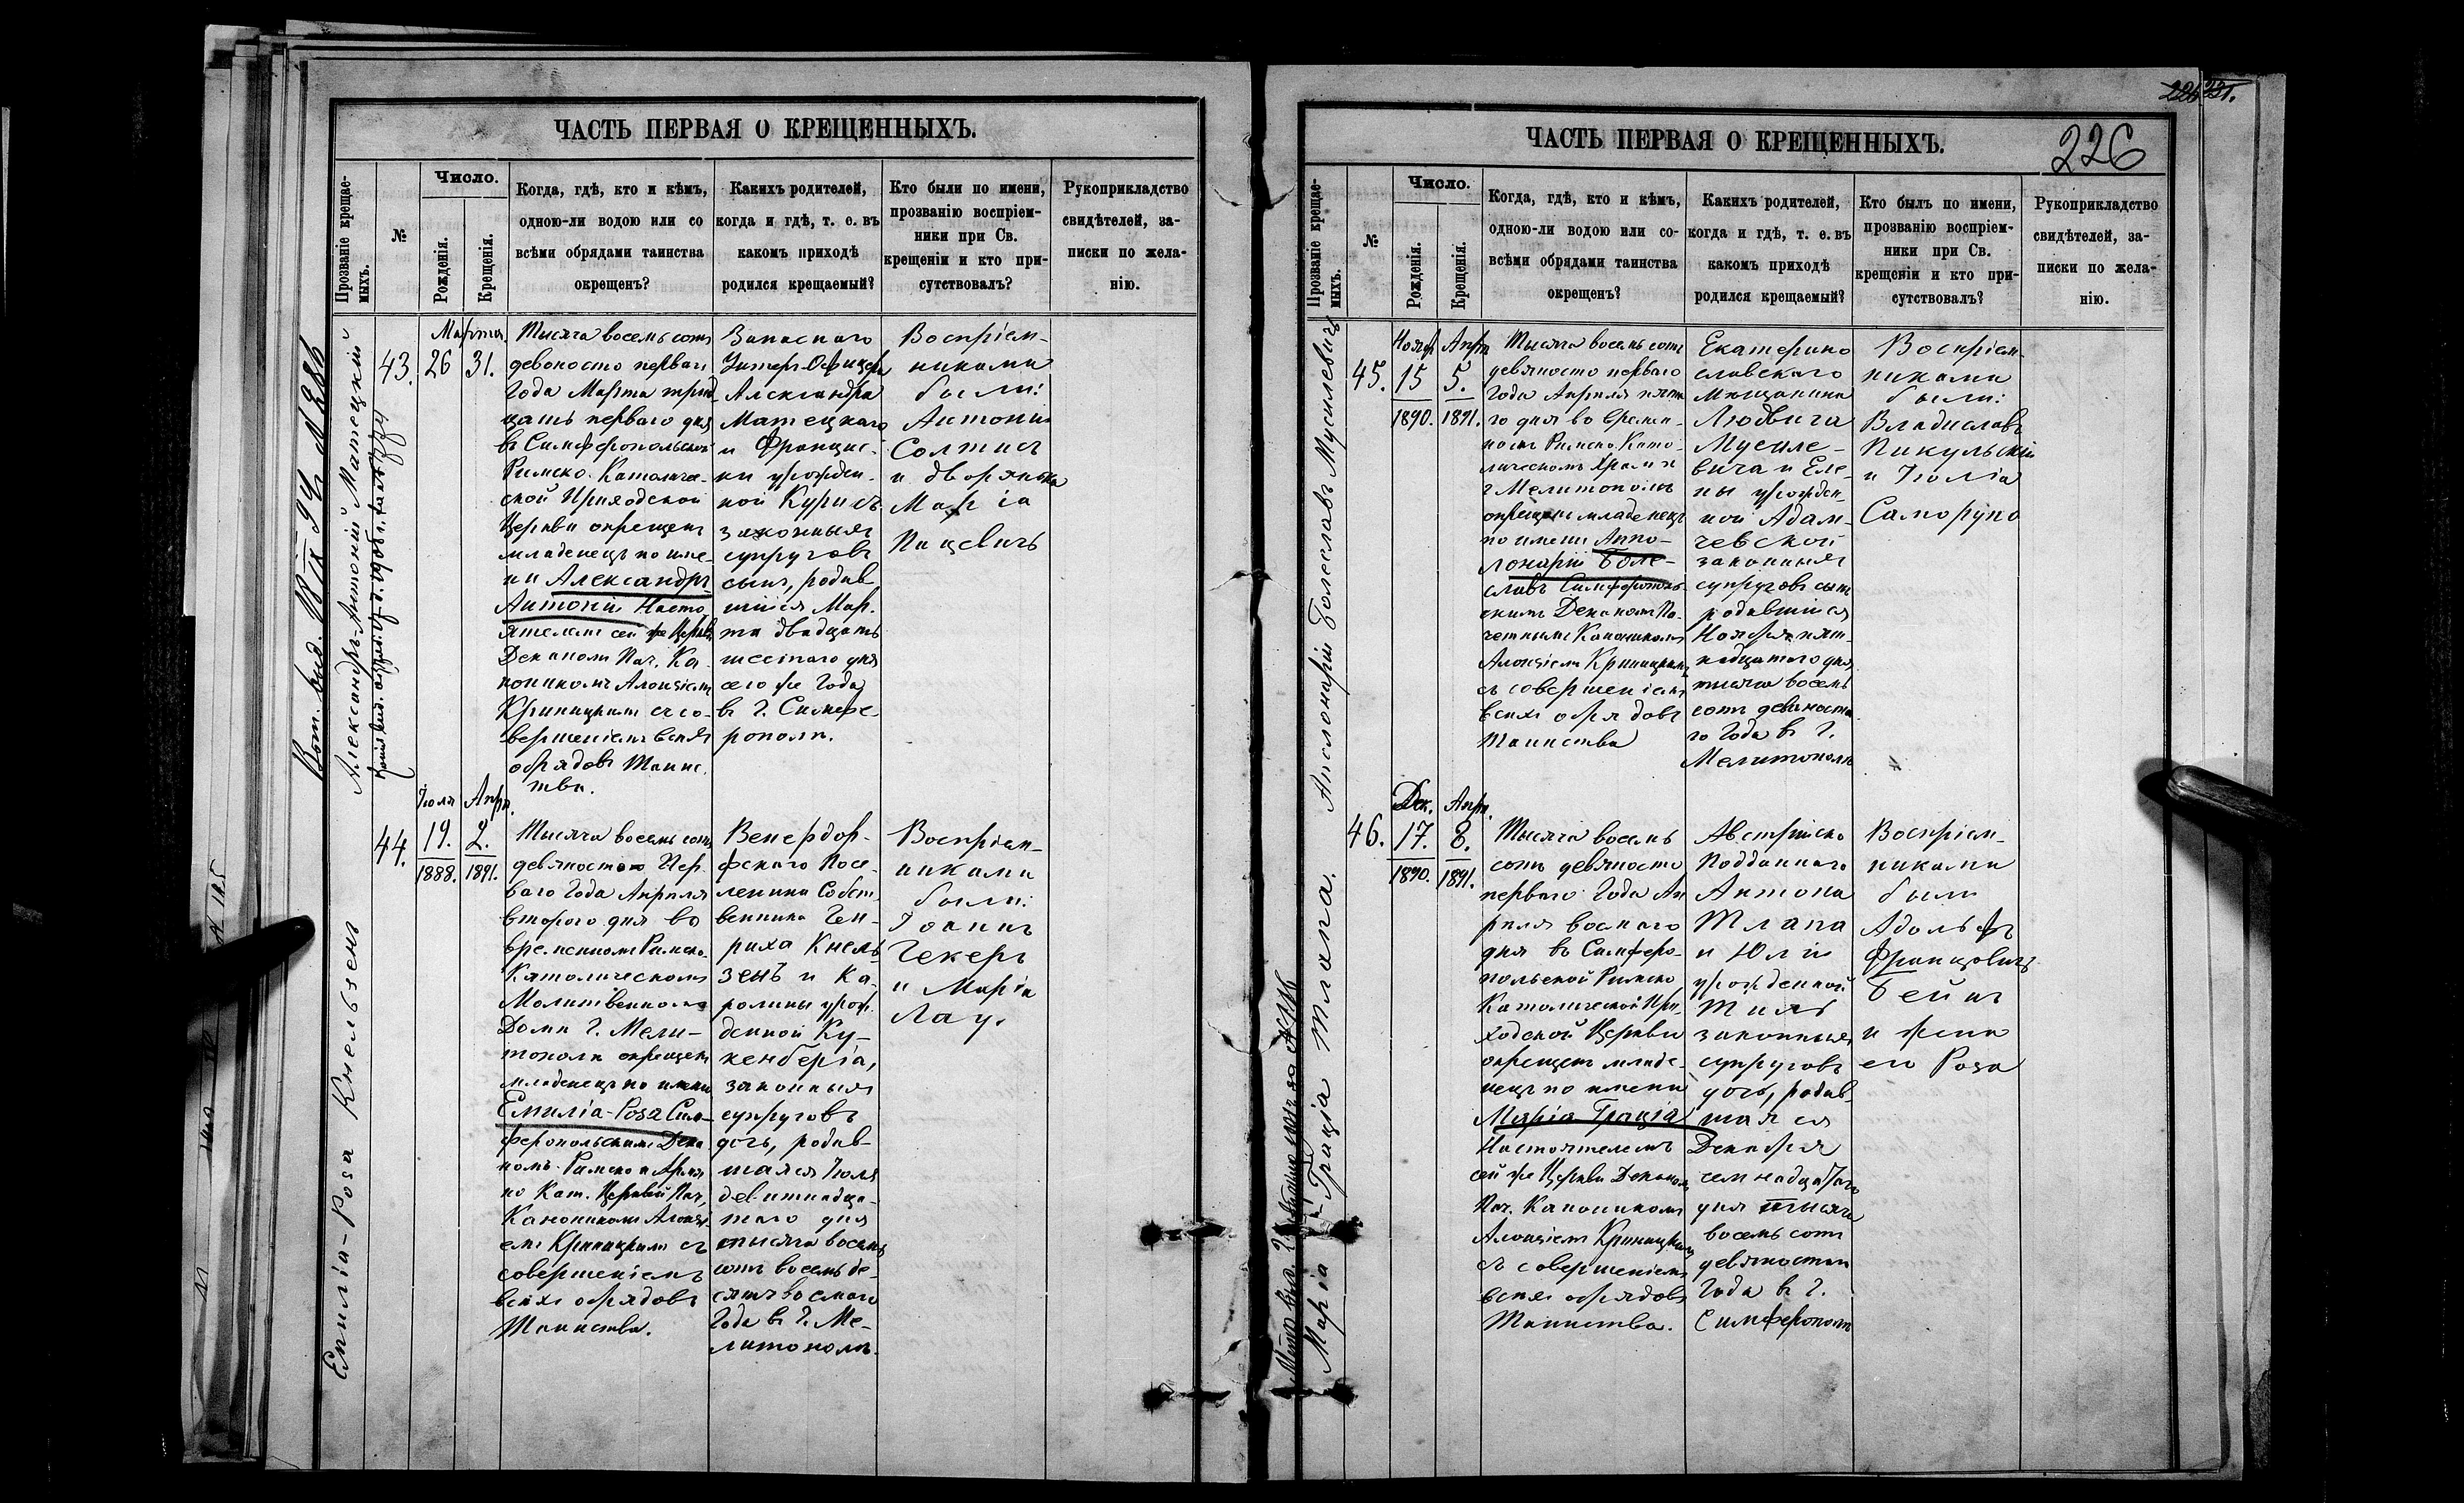 ЧАСТЬ ПЕРВАЯ О КРЕЩЕННЫХЪ.
Прозваніе крещае-
мыхъ.
№
Число.
Рожденія.
Крещенія.
Когда, гдѣ, кто и кѣмъ,
одною-ли водою или со
всѣми обрядами таинства
окрещенъ?
Какихъ родителей,
когда и гдѣ, т. е. въ
какомъ приходѣ
родился крещаемый?
Кто были по имени,
прозванію воспріем-
ники при Св.
крещеніи и кто при-
сутствовалъ?
Рукоприкладство
свидѣтелей, за-
писки по жела-
нію.
Александръ-Антоній Матецкій
43.
Марта
26 31.
Тысяча восемь сотъ
девяносто перваго
Года Марта трид-
цать перваго дня
въ Симферопольской
Римско-Католиче-
ской Приходской
Церкви окрещенъ
младенецъ по име-
ни Александръ
Антоній Насто-
ятелемъ сей же Церкви
Деканомъ Поч. Ка-
ноникомъ Алоизіемъ
Криницкимъ съ со-
вершеніемъ всѣхъ
обрядовъ Таинс-
тва.
Запаснаго
Унтеръ-Офицера
Александра
Матецкаго
и Францис-
ки урожден-
ной Курисъ
законныхъ
супруговъ
сынъ, родив
шійся Мар-
та двадцать
шестаго дня
сего же Года
въ Г. Симфе-
рополѣ.
Воспріем-
никами
были:
Антоній
Солтисъ
и дворянка
Марія
Пацевичъ
Емилія-Роза Кнельзенъ
44.
Іюля Апр.
19. 2.
1888. 1891.
Тысяча восемь сотъ
девяносто Пер-
ваго Года Апрѣля
втораго дня во
временномъ Римско-
Католическомъ
Молитвенномъ
Домѣ Г. Мели-
тополя окрещенъ
младенецъ по имени
Емилія-Роза Сим-
феропольскимъ Дека
номъ Римско и Армя
но Кат. Церквей Поч.
Каноникомъ Алоизі-
емъ Криницкимъ съ
совершеніемъ
всѣхъ обрядовъ
Таинства.
Венердор-
фскаго Посе-
ленина Собст-
венника Ген-
риха Кнель-
зенъ и Ка-
ролины урож-
денной Ку-
кенберія,
законныхъ
супруговъ
дочь, родив-
шаяся Іюля
девятнадца-
таго дня
тысяча восемь
сотъ восемьде-
сятъ восьмаго
Года въ Г. Ме-
литополѣ.
Воспріем-
никами
были:
Іоаннъ
Гекеръ
и Марія
Лау.
ЧАСТЬ ПЕРВАЯ О КРЕЩЕННЫХЪ.
226
Прозваніе крещае-
мыхъ.
№
Число.
Рожденія.
Крещенія.
Когда, гдѣ, кто и кѣмъ,
одною-ли водою или со-
всѣми обрядами таинства
окрещенъ?
Какихъ родителей,
когда и гдѣ, т. е. въ
какомъ приходѣ
родился крещаемый?
Кто былъ по имени,
прозванію воспріем-
ники при Св.
крещеніи и кто при-
сутствовалъ?
Рукоприкладство
свидѣтелей, за-
писки по жела-
нію.
Апполонарій Болеславъ Мусилевичъ
45.
Нояб. Апр.
15 5.
1890. 1891.
Тысяча восемь сотъ
девяносто перваго
Года Апрѣля пята
го дня во времен-
номъ Римско Като-
лическомъ Храмѣ
г Мелитополя
окрещенъ младенецъ
по имени Аппо-
лонарій Боле-
славъ Симферополь-
скимъ Деканомъ По-
четнымъ Каноникомъ
Алоизіемъ Криницкимъ
съ совершеніемъ
всѣхъ обрядовъ
Таинства
Екатерино
славскаго
Мѣщанина
Людвига
Мусиле-
вича и Еле-
ны урожден-
ной Адам-
чевской
законныхъ
супруговъ сынъ
родившійся
Ноября пят-
надцатаго дня
тысяча восемь
сотъ девяноста
го Года въ Г.
Мелитополѣ
Воспріем-
никами
были:
Владиславъ
Пикульскій
и Юлія
Саморупо
Марія-Грація Тлапа.
46.
Дек. Апр.
17. 8.
1890. 1891.
Тысяча восемь
сотъ девяносто
перваго Года Ап
рѣля восьмаго
дня въ Симферо-
польской Римско
Католической При-
ходской Церкви
окрещенъ младе-
нецъ по имени
Марія Грація
Настоятелемъ
сей же Церкви Деканомъ
Поч. Каноникомъ
Алоизіемъ Криницкимъ
съ совершеніемъ
всѣхъ обрядовъ
Таинства.
Австрійско
Подданнаго
Антона
Тлапа
и Юліи
урожденной
Тиль
законныхъ
супруговъ
дочь, родив-
шаяся
Декабря
семнадцатаго
дня тысяча
восемь сотъ
девяностаго
Года въ Г.
Симферополѣ
Воспріем-
никами
были
Адольфъ
Францовичъ
Бейнъ
и жена
его Роза